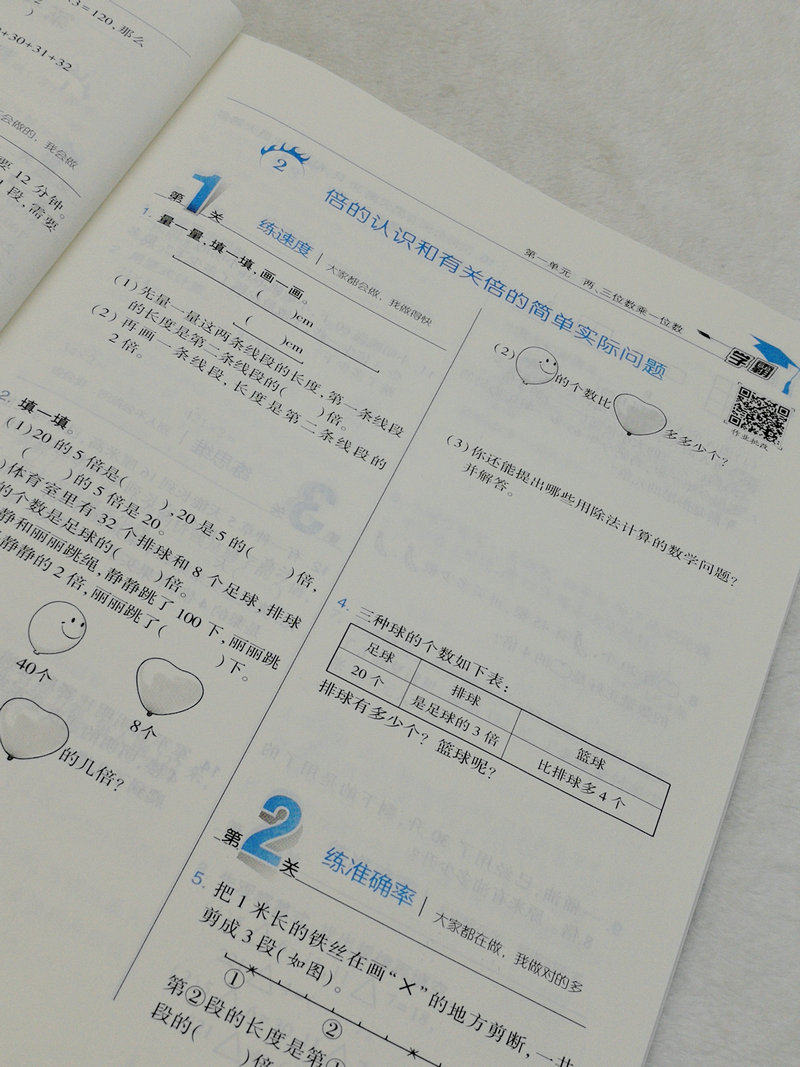 3=120,那么
)
+30+31+32
会做的,我会做
要 12 分钟。
段,需要
第一单元 两、三位数乘一位数
学霸
作业批改
2
倍的认识和有关倍的简单实际问题
第1关
练速度
大家都会做,我做得快
1. 量一量,填一填,画一画。
( )cm
( )cm
(1)先量一量这两条线段的长度,第一条线段
的长度是第二条线段的( )倍。
(2)再画一条线段,长度是第二条线段的
2倍。
2. 填一填。
(1)20的5倍是( ),20是5的( )倍,
( )的5倍是20。
)体育室里有32个排球和8个足球,排球
的个数是足球的( )倍。
静和丽丽跳绳,静静跳了100下,丽丽跳
静静的2倍,丽丽跳了( )下。
40个
8个
的几倍?
(2) 的个数比 多多少个?
(3)你还能提出哪些用除法计算的数学问题?
并解答。
4. 三种球的个数如下表:
足球 排球 篮球
20个 是足球的3倍 比排球多4个
排球有多少个?篮球呢?
第2关
练准确率
大家都在做,我做对的多
5. 把1米长的铁丝在画“×”的地方剪断,一共
剪成3段(如图)。
① ②
第②段的长度是第①
段的( )倍